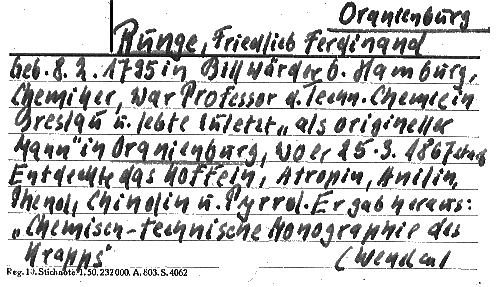 Oranienburg
Runge, Friedlieb Ferdinand
geb. 8. 2. 1795 in Billwärder b. Hamburg,
Chemiker, war Professor d. Techn. Chemie in
Breslau u. lebte zuletzt „als origineller
Mann" in Oranienburg, wo er 25. 3. 1867 starb
Entdeckte das Koffein, Atropin, Anilin,
Phenol, Chinolin u. Pyrrol. Er gab heraus:
„Chemisch-technische Monographie des
Krapps"
Reg. 10. Stichnote 1. 50. 232000. A. 803. S. 4062